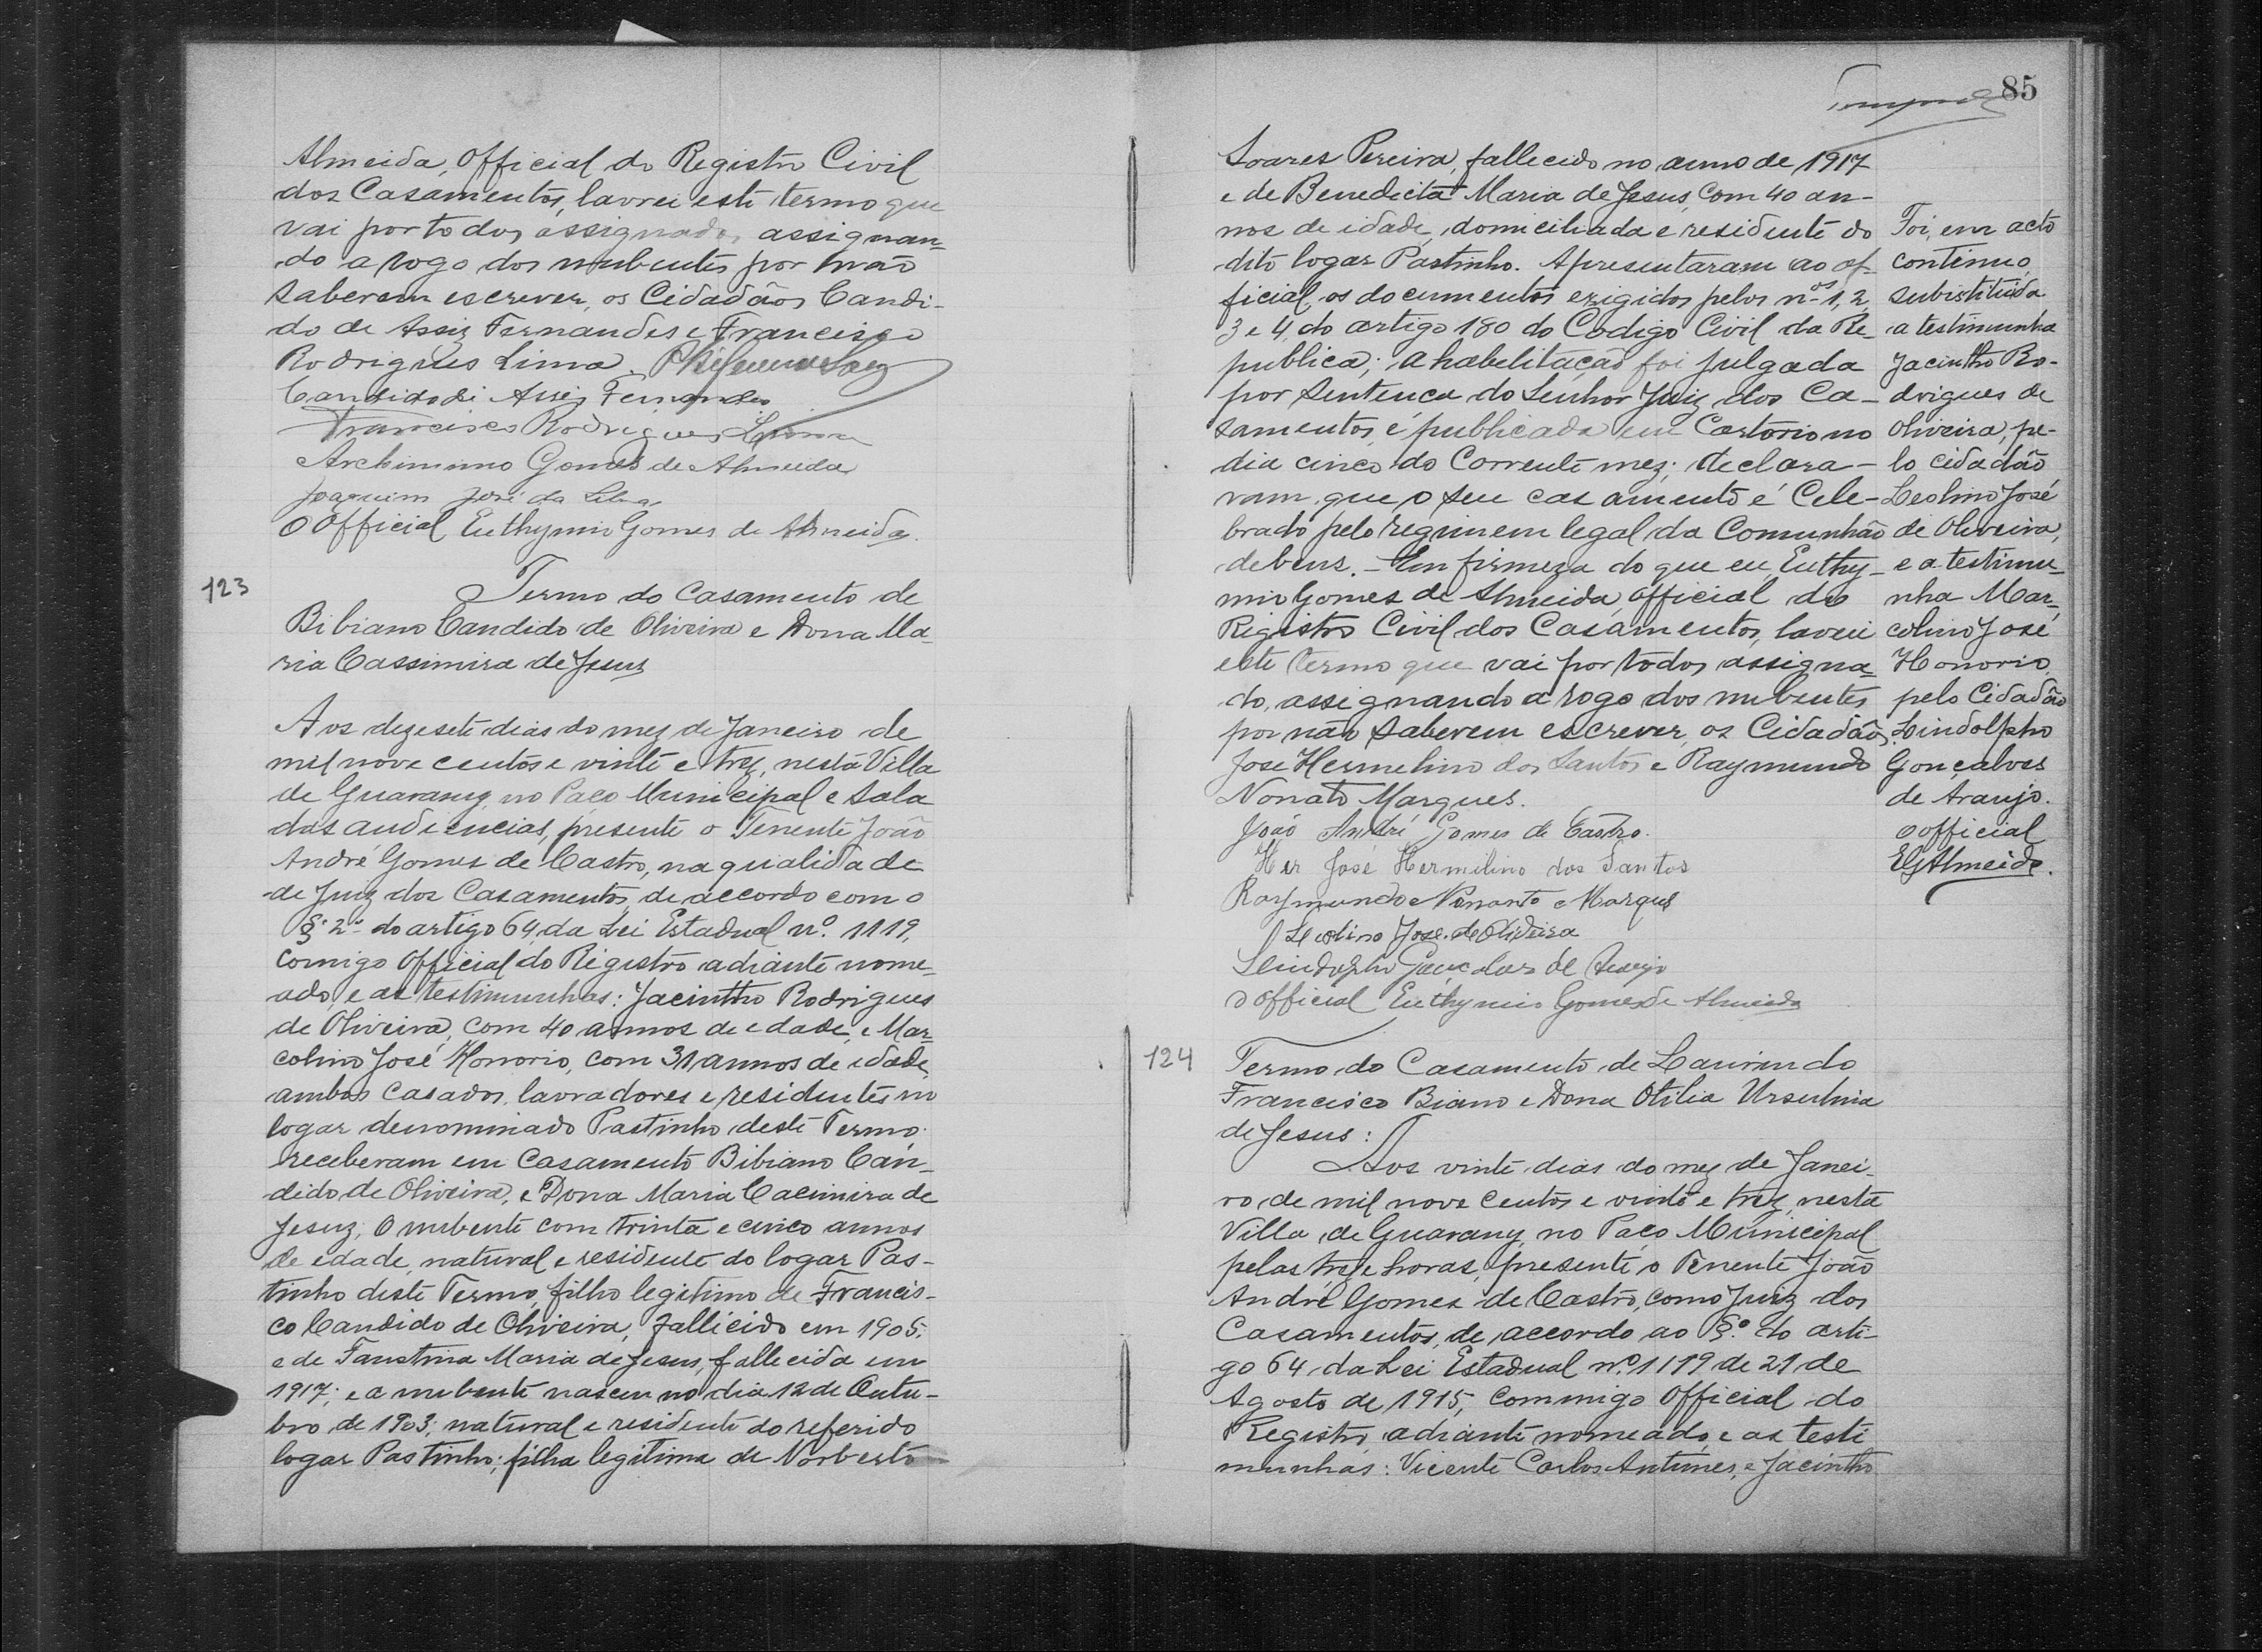 Almeida, Official do Registro Civil
dos Casamentos, lavrei este termo que
vai por todos assignado, assignan-
do a rogo dos nubentes por não
saberem escrever, os Cidadãos Candi-
do de Assiz Fernandes e Francisco
Rodrigues Lima.
Candido de Assis Fernandes
Francisco Rodrigues Lima
Archimimo Gomes de Almeida
Joaquim José da Silva
O Official Euthymio Gomes de Almeida.
123
Termo do Casamento de
Bibiano Candido de Oliveira e Dona Ma-
ria Cassimira de Jesus
Aos dezesete dias do mez de Janeiro de
mil nove centos e vinte e trez, nesta Villa
de Guarany, no Paço Municipal e Sala
das audiencias, presente o Tenente João
André Gomes de Castro, na qualidade
de Juiz dos Casamentos, de accordo com o
§ 2º do artigo 64 da Lei Estadual nº. 1119,
comigo Official do Registro adiante nome-
ado, e as testimunhas: Jacintho Rodrigues
de Oliveira, com 40 annos de edade, e Mar-
colino José Honorio, com 31 annos de idade,
ambos casados, lavradores e residentes no
logar denominado Pastinho deste Termo,
receberam em Casamento Bibiano Can-
dido de Oliveira, e Dona Maria Casimira de
Jesuz; O nubente com trinta e cinco annos
de edade, natural e residente do logar Pas-
tinho deste Termo, filho legitimo de Francis-
co Candido de Oliveira, fallecido em 1905,
e de Faustina Maria de Jesus, fallecida em
1917; e a nubente nasceu no dia 12 de Outu-
bro de 1903; natural e residente do referido
logar Pastinho; filha legitima de Norberto
85
Soares Pereira, fallecido no anno de 1917
e de Benedicta Maria de Jesus, com 40 an-
nos de idade, domiciliada e residente do
dito logar Pastinho. Apresentaram ao of-
ficial, os documentos exigidos pelos nos. 1, 2,
3 e 4, do artigo 180 do Codigo Civil da Re-
publica; a habilitação foi julgada
por Sentença do Senhor Juiz dos Ca-
samentos, e publicada em Cartorio no
dia cinco do Corrente mez; declara-
ram, que o seu casamento é Cele-
brado pelo regimem legal da Comunhão
de bens. - Em firmeza do que eu, Euthy-
mio Gomes de Almeida, Official do
Registro Civil dos Casamentos, lavrei
este termo que vai por todos assigna-
do, assignando a rogo dos nubentes
por não saberem escrever, os Cidadãos,
José Hermelino dos Santos e Raymundo
Nonato Marques.
João André Gomes de Castro.
Her José Hermilino dos Santos
Raymundo Nonanto Marques
Leolino José de Oliveira
Lindolpho Gonçalves de Araujo
O Official Euthymio Gomes de Almeida
Foi, em acto
continuo,
substituida
a testimunha
Jacintho Ro-
drigues de
Oliveira, pe-
lo cidadão
Leolino José
de Oliveira,
e a testimu-
nha Mar-
colino José
Honorio,
pelo Cidadão
Lindolpho
Gonçalves
de Araujo.
O official
EGAlmeida.
124
Termo do Casamento de Laurindo
Francisco Biano e Dona Otilia Ursulina
de Jesus:
Aos vinte dias do mez de Janei-
ro de mil nove centos e vinte e trez, nesta
Villa de Guarany, no Paço Municipal
pelas treze horas, presente o Tenente João
André Gomes de Castro, como Juiz dos
Casamentos, de accordo ao §º. do arti-
go 64 da Lei Estadual nº. 1119 de 21 de
Agosto de 1915, Commigo Official do
Registro, adiante nomeado, e as testi
munhas: Vicente Carlos Antunes, e Jacintho